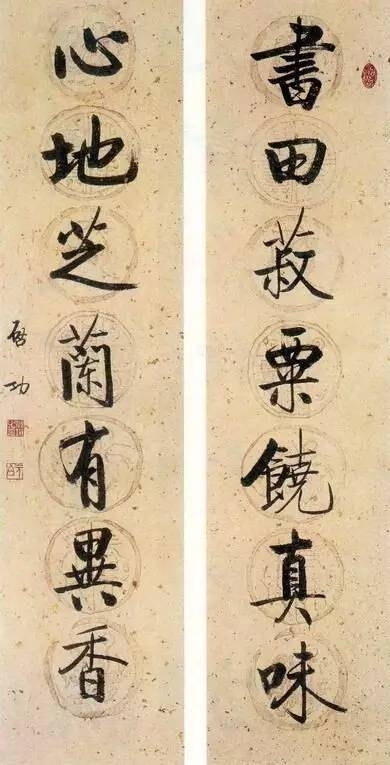 書田菽粟饒真味
心地芝蘭有異香
啓功